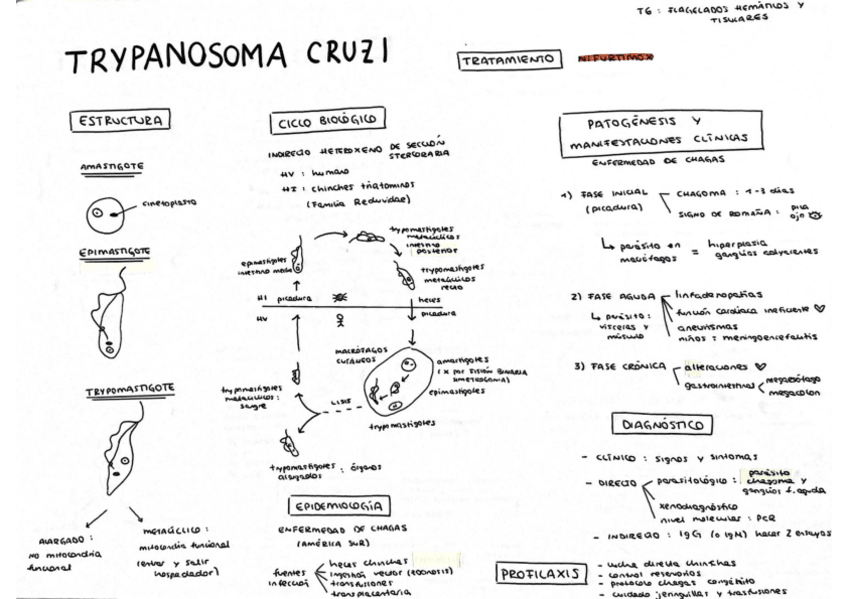 T6 : FLAGELADOS HEMÁTICOS Y
TISULARES
TRYPANOSOMA CRUZI
TRATAMIENTO
NIFURTIMOX
ESTRUCTURA
AMASTIGOTE
cinetoplasto
EPIMASTIGOTE
TRYPOMASTIGOTE
ALARGADO :
NO mitocondria
funcional
METACÍCLICO :
mitocondria funcional
(entrar y salir
hospedador)
CICLO BIOLÓGICO
INDIRECTO HETEROXENO DE SECCIÓN
STERCORARIA
HV : humano
HI : chinches triatominos
(Familia Reduvidae)
trypomastigotes
metacíclicos
intestino
posterior
epimastigotes
intestino medio
trypomastigotes
metacíclicos
recto
HI picadura
heces
HV
picadura
MACRÓFAGOS
CUTÁNEOS
amastigotes
(x por FISIÓN BINARIA
epimastigotes
trypomastigotes
metacíclicos :
sangre
LISIS
trypomastigotes
trypomastigotes : órganos
alargados
EPIDEMIOLOGÍA
ENFERMEDAD DE CHAGAS
(AMÉRICA SUR)
fuentes
infección
heces chinches
ingestión vector (zoonosis)
transfusiones
transplacentaria
PATOGÉNESIS Y
MANIFESTACIONES CLÍNICAS
ENFERMEDAD DE CHAGAS
1) FASE INICIAL
(picadura)
CHAGOMA : 1-3 días
SIGNO DE ROMAÑA : pica
ojo
↳ parásito en
macrófagos = hiperplasia
ganglios adyacentes
2) FASE AGUDA
↳ parásito :
vísceras y
músculo
linfadenopatías
función cardíaca ineficiente ♡
aneurismas
niños : meningoencefalitis
3) FASE CRÓNICA
alteraciones ♡
gastrointestinal
megaesófago
megacolon
DIAGNÓSTICO
- CLÍNICO : signos y síntomas
- DIRECTO
parasitológico : parásito
chagoma y
ganglios f. aguda
xenodiagnóstico
nivel molecular : PCR
- INDIRECTO : IgG (o IgM) hacer 2 ensayos
PROFILAXIS
- lucha directa chinches
- control reservorios
- protocolo chagas congénito
- cuidado jeringuillas y trasfusiones